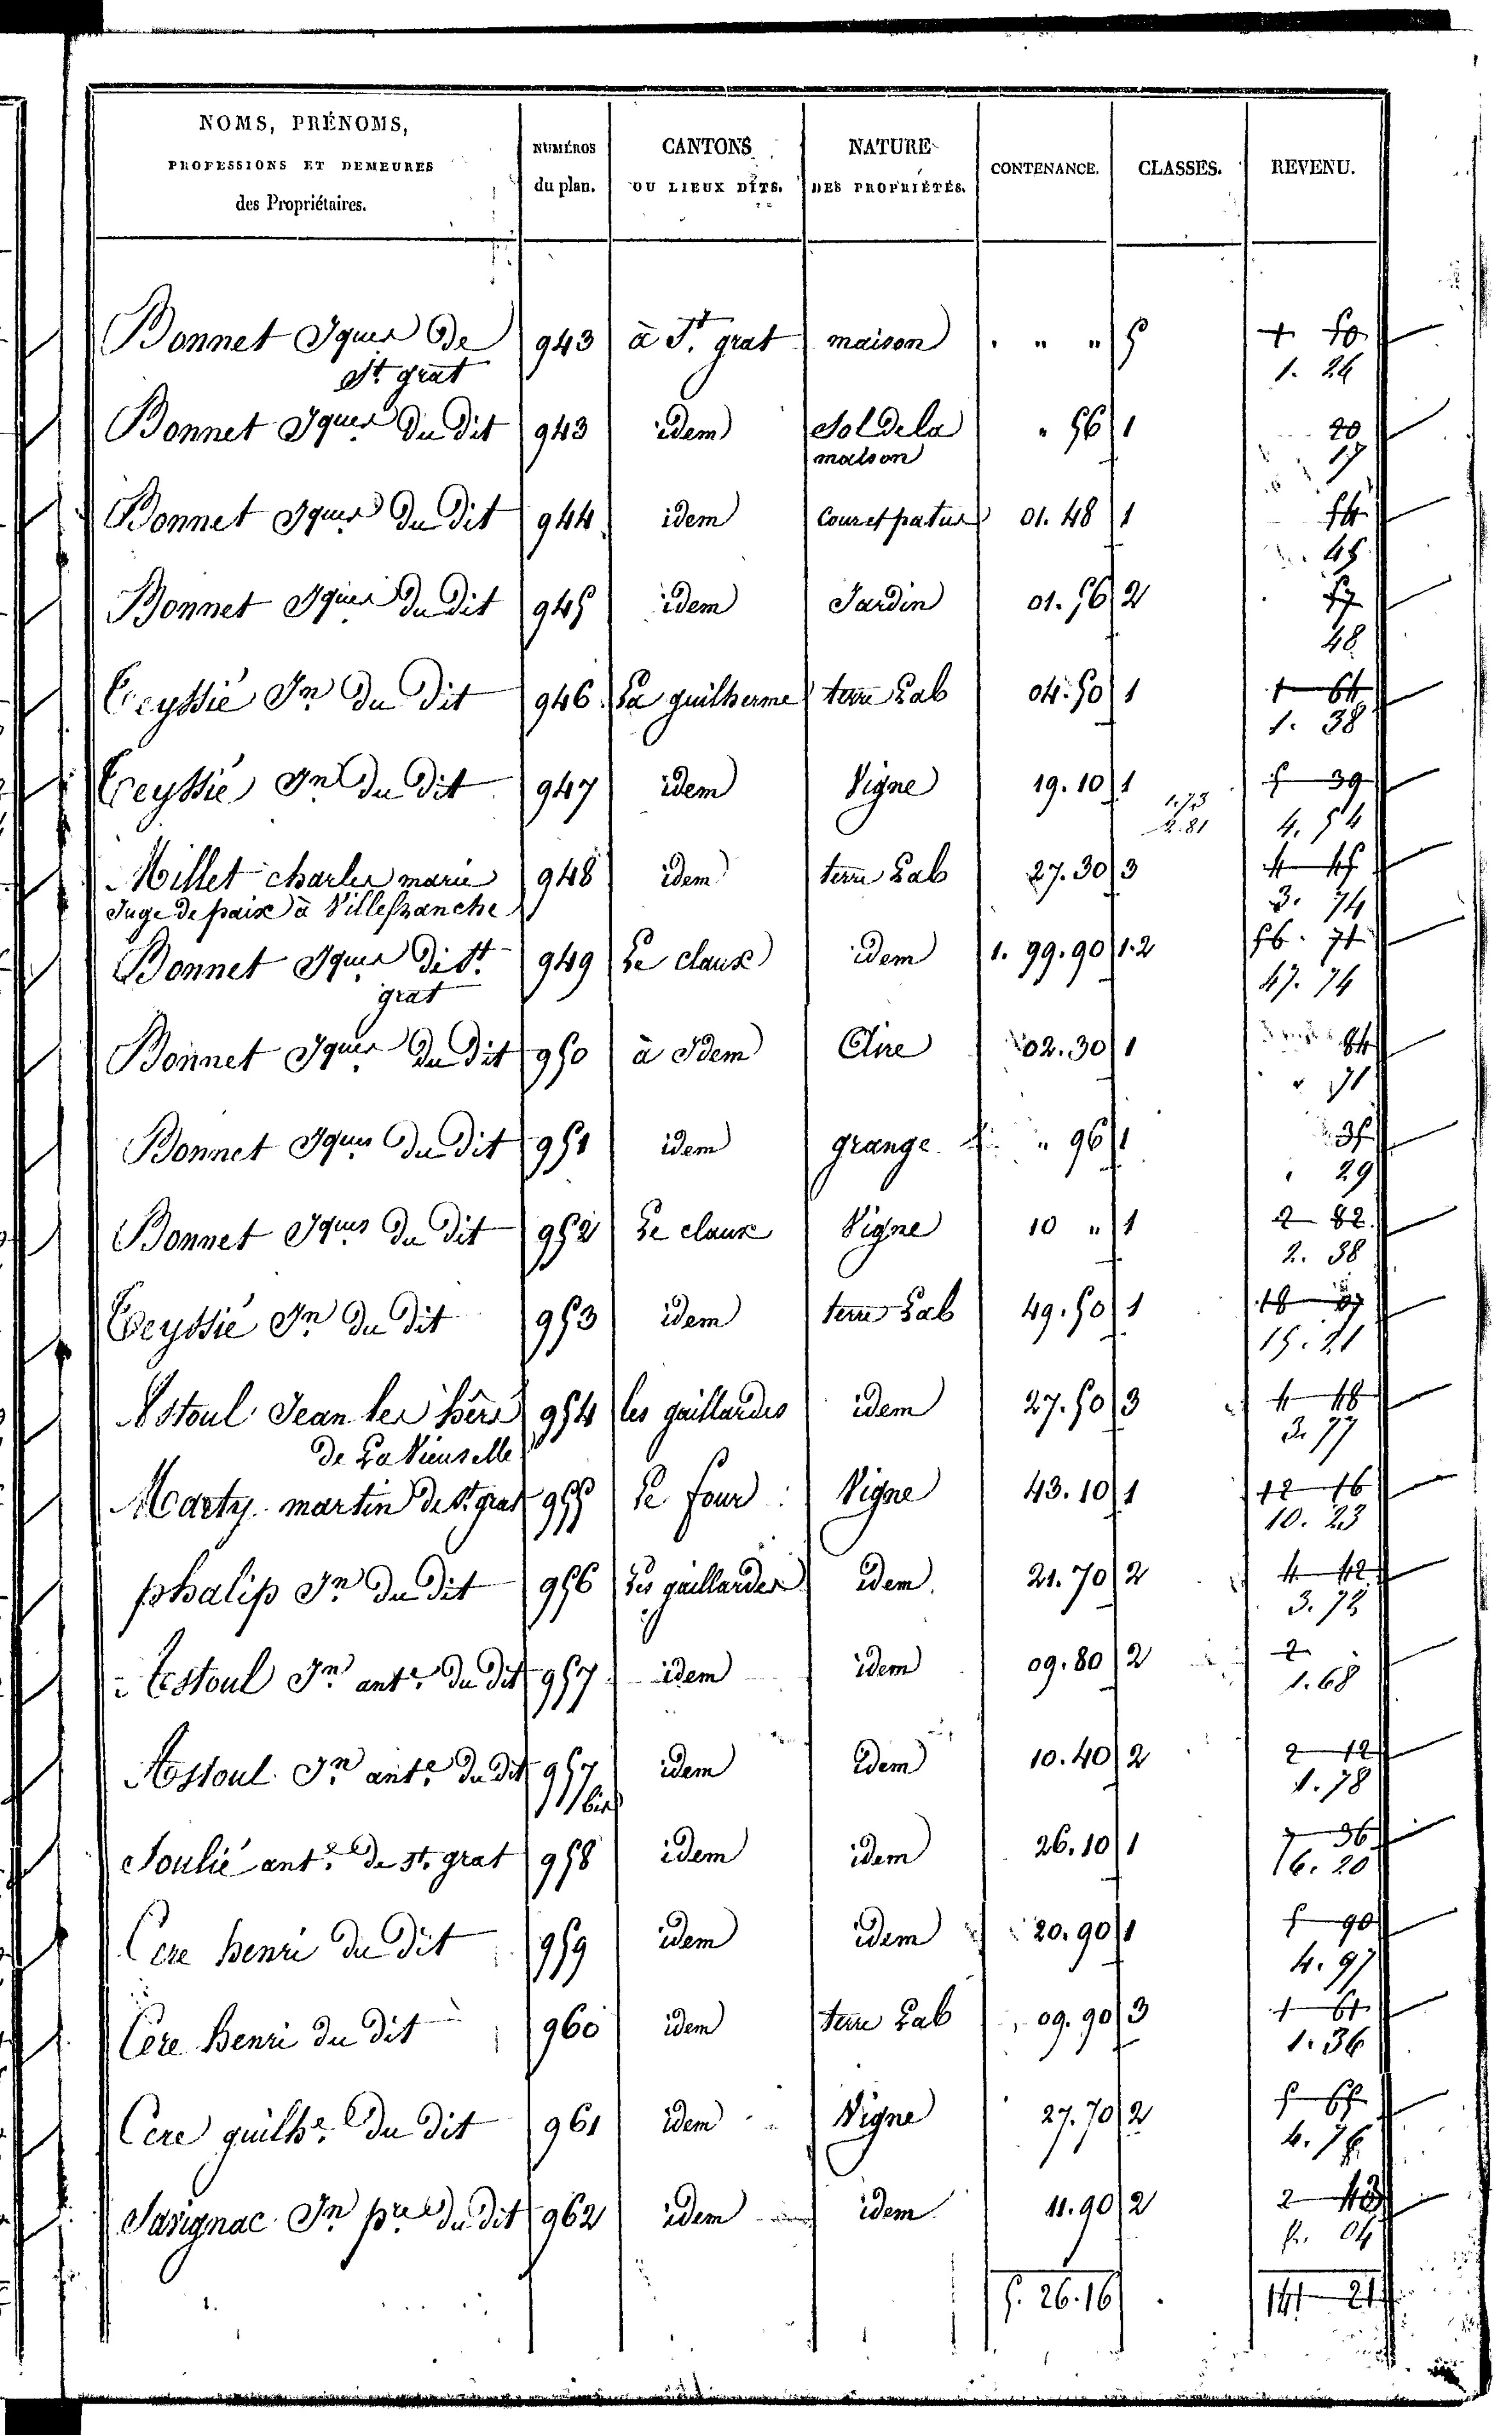 NOMS, PRÉNOMS,
PROFESSIONS ET DEMEURES
des Propriétaires.
NUMÉROS
du plan.
CANTONS
OU LIEUX DITS.
NATURE
DES PROPRIÉTÉS.
CONTENANCE.
CLASSES.
REVENU.
Bonnet Jques De 943 à St. grat maison " " " 5 1 50
St. grat 1. 26
Bonnet Jques du dit 943 idem Sol de la " 56 1 20
maison 17
Bonnet Jques du dit 944 idem Cour et patus 01. 48 1 54
45
Bonnet Jques du dit 945 idem Jardin 01. 56 2 57
48
Teyssié Jn du dit 946 La guilherme terre Lab 04. 50 1 1 64
1. 38
Teyssié Jn du dit 947 idem Vigne 19. 10 1 5 39
1.73
2.81 4. 54
Millet charles marie 948 idem terre Lab 27. 30 3 4 45
Juge de paix à Villefranche 3. 74
Bonnet Jques de St. 949 Le claux idem 1. 99. 90 1.2 56. 71
grat 47. 74
Bonnet Jques du dit 950 à Idem Aire 02. 30 1 84
" 71
Bonnet Jques du dit 951 idem grange " 96 1 35
" 29
Bonnet Jques du dit 952 Le claux Vigne 10 " 1 2 82
2. 38
Teyssié Jn du dit 953 idem terre Lab 49. 50 1 18 07
15. 21
Astoul Jean les hérs 954 les gaillardes idem 27. 50 3 4 48
de La Vieuselle 3. 77
Marty martin de St. grat 955 Le four Vigne 43. 10 1 12 16
10. 23
phalip Jn du dit 956 Les gaillardes idem 21. 70 2 4 42
3. 72
Astoul Jn ante du dit 957 idem idem 09. 80 2 2
1. 68
Astoul Jn ante du dit 957 idem idem 10. 40 2 2 12
bis 1. 78
Soulié ante de st. grat 958 idem idem 26. 10 1 7 36
6. 20
Cere henri du dit 959 idem idem 20. 90 1 5 90
4. 97
Cere henri du dit 960 idem terre Lab 09. 90 3 1 61
1. 36
Cere guilhe du dit 961 idem Vigne 27. 70 2 5 65
4. 76
Savignac Jn pre du dit 962 idem idem 11. 90 2 2 43
2. 04
5. 26. 16 141 21